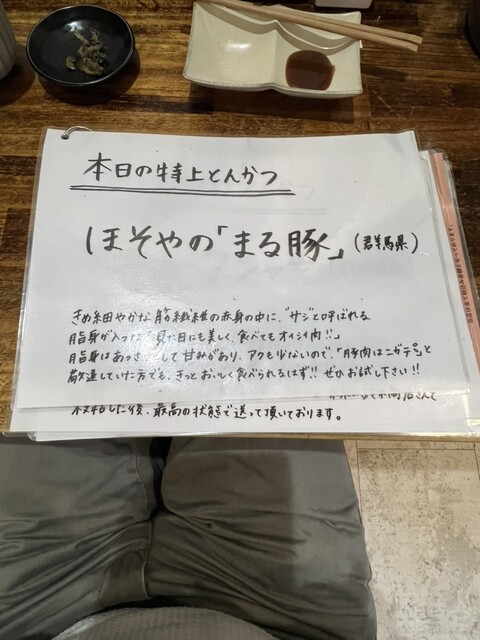 本日の特上とんかつ
ほそやの「まる豚」(群馬県)
きめ細やかな筋繊維の赤身の中に、"サシ"と呼ばれる
脂身が入った「見た目にも美しく、食べてもオイシイ肉!!」
脂身はあっさりして甘みがあり、アクも少ないので、「豚肉はニガテ…」と
敬遠していた方でも、きっとおいしく食べられるはず!! ぜひお試し下さい!!
した後、最高の状態で送って頂いております。